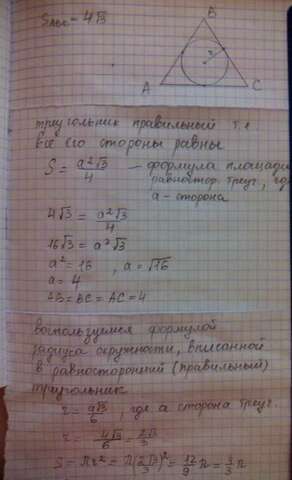 S_АВС = 4√3
B
r
A
C
треугольник правильный т.е
все его стороны равны
S = a²√3/4 — формула площади
равностор. треуг., где
a - сторона
4√3 = a²√3/4
16√3 = a²√3
a² = 16 , a = √16
a = 4
AB = BC = AC = 4
воспользуемся формулой
радиуса окружности, вписанной
в равносторонний (правильный)
треугольник
r = a√3/6 , где a сторона треуг.
r = 4√3/6 = 2√3/3
S = πr² = π(2√3/3)² = 12/9 π = 4/3 π